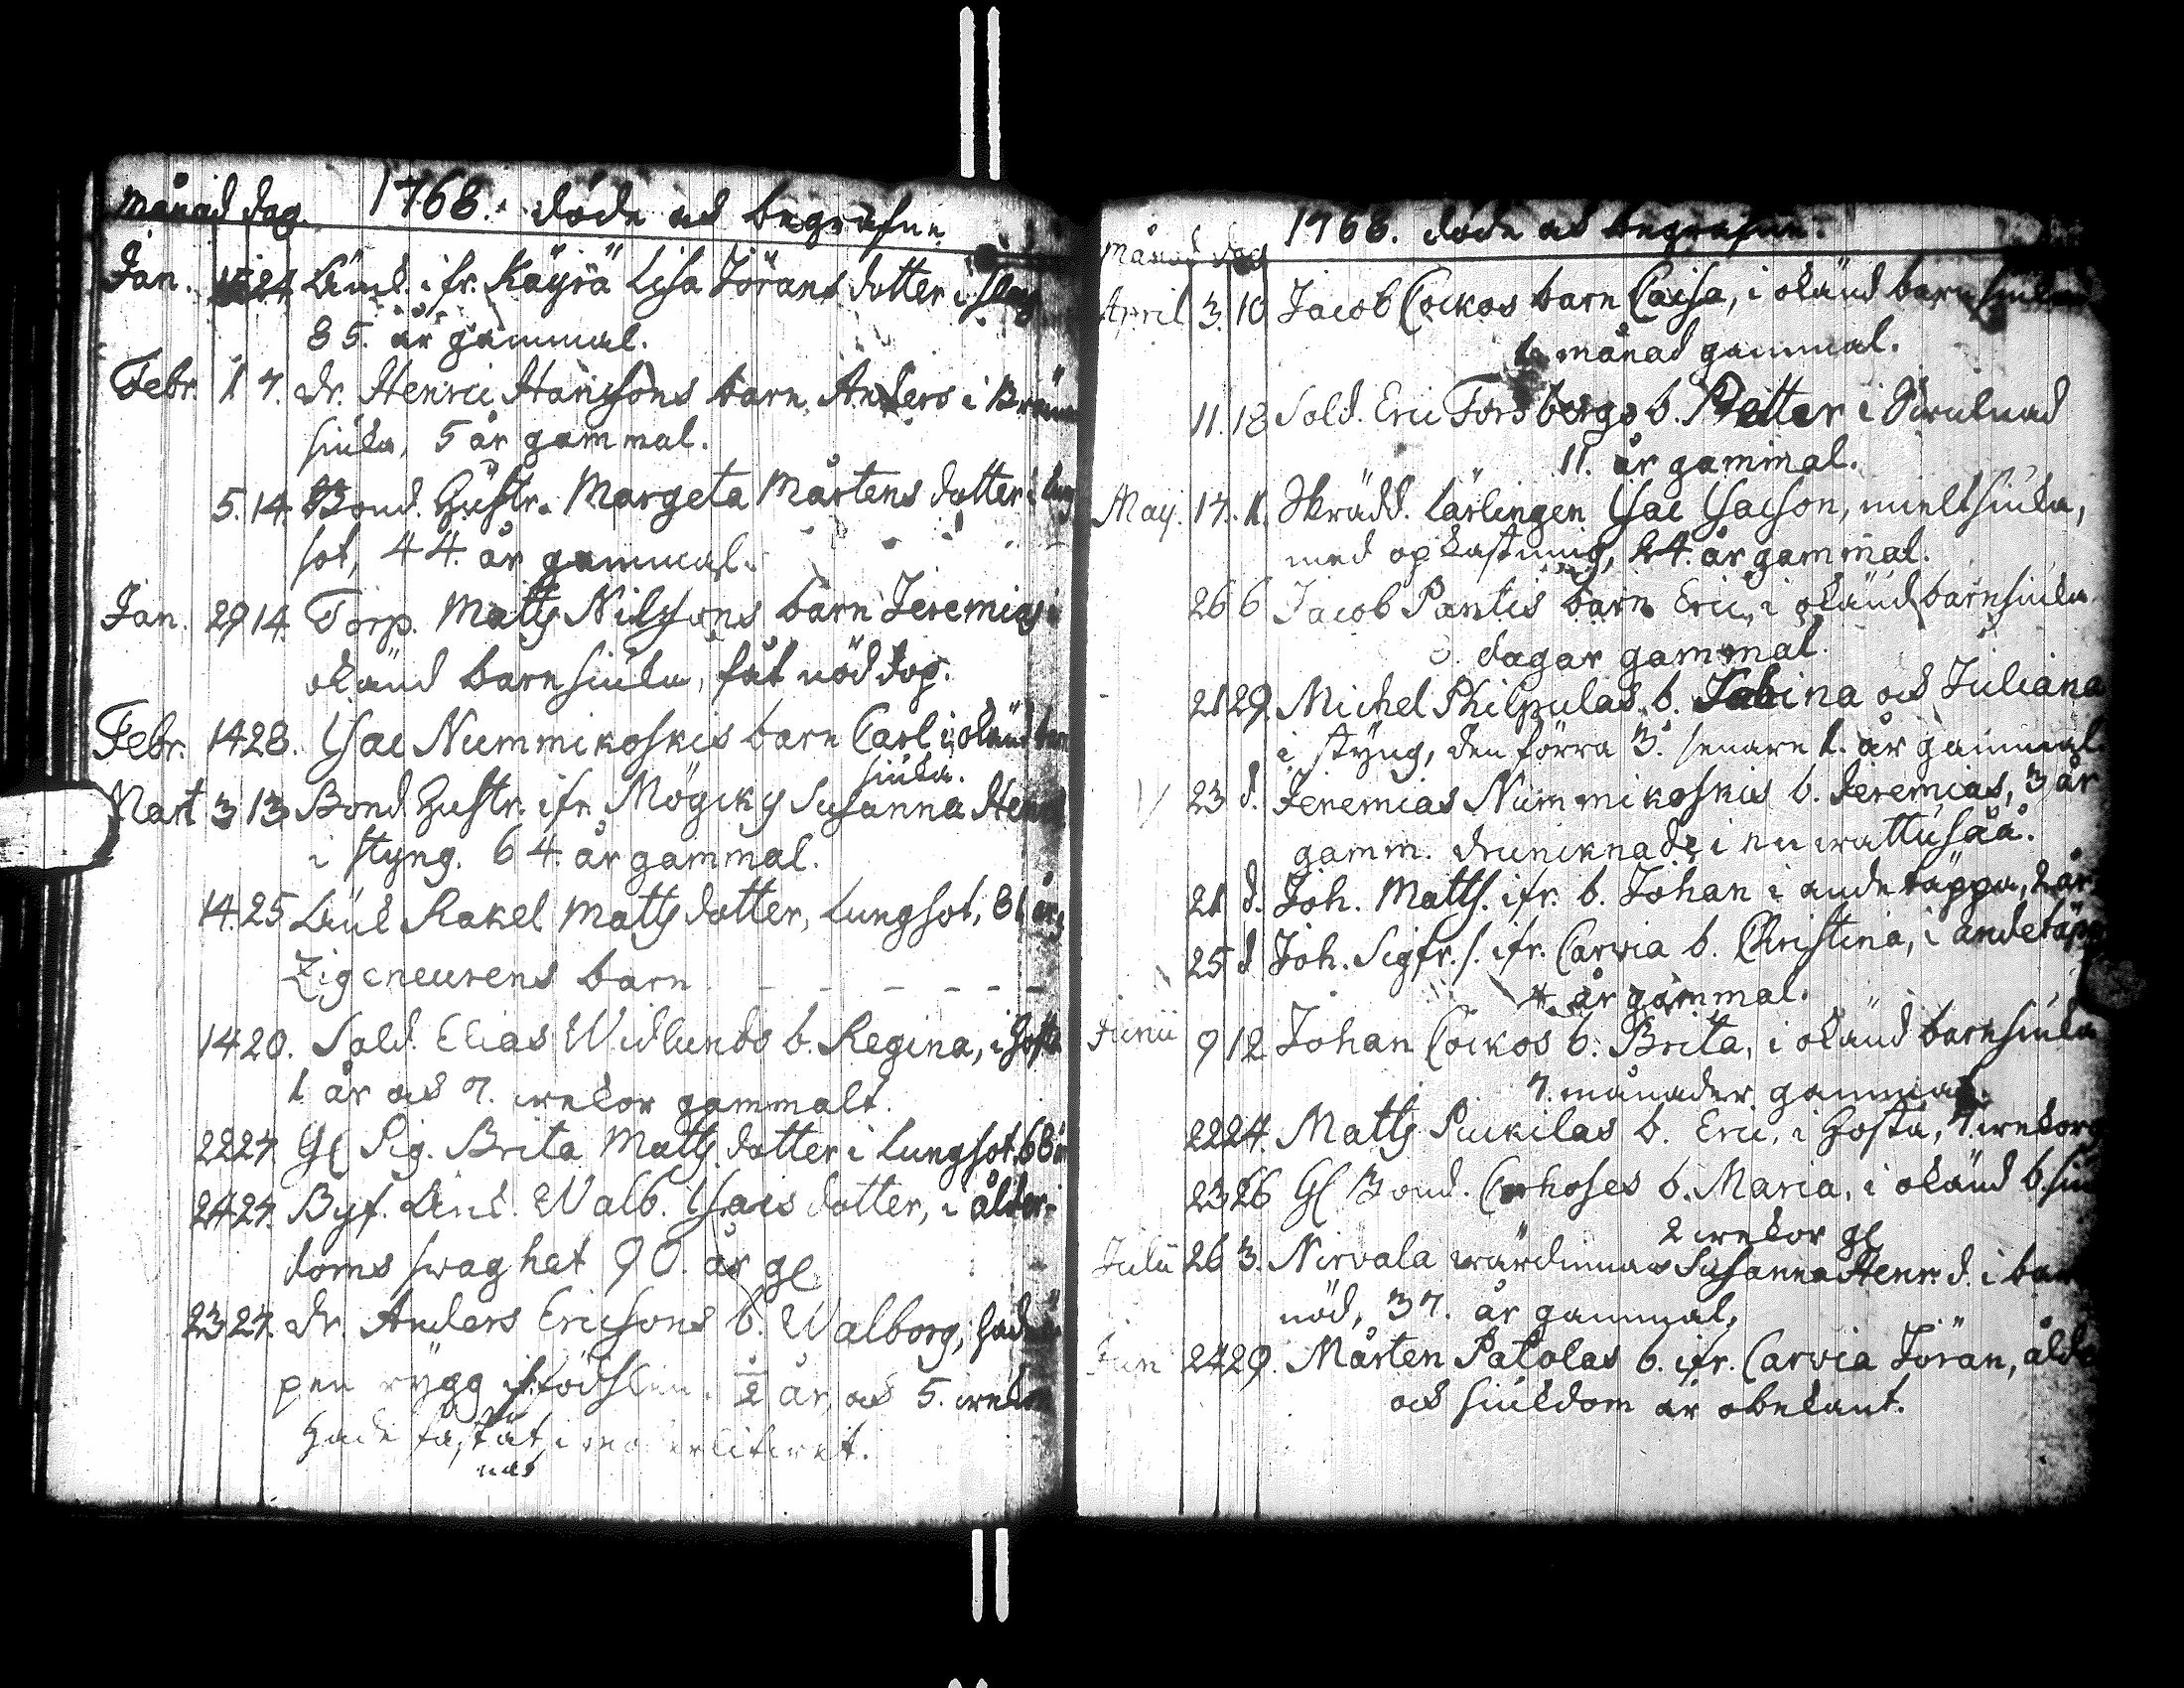 Månad dag. 1768. döde och begrafne
Jan. 24. Änck. ifr. Käyrä Lisa Jörans dotter i slag
85. år gammal.
Febr. 1 7. dr. Henric Hansons barn Anders i
siuka, 5 år gammal.
5. 14. Bond. Hustr. Margeta Mårtens dotter i lung
sot, 44. år gammal.
Jan. 29 14. Torp. Matts Nilssons barn Jeremias i
okänd barnsiuka, fåt nöddop.
Febr. 14 28. Isac Nummikoskis barn Carl i okänd barn
siuka.
Mart 3 13 Bond Hustr. ifr. Mögiky Susanna Henr
i styng. 64. år gammal.
14. 25 Änk Rakel Matts dotter, Lungsot, 81 år
Zigeneurens barn - - - - - -
14 20. Sold. Elias Widlunds b. Regina, i Hosta
1 år och 7. wekor gammalt.
22 27. Gl Pig. Brita Matts dotter i Lungsot. 68 år
24 27. Byf. Änk. Walb. Isacs dotter, i ålder-
doms swaghet 90. år gl
23 27. dr. Anders Ericsons b. Walborg, hade
pen rygg ifrå födslen. 1/2 år, och 5. wekor
Hade
1768. döde och begrafne.
Månad dag
April 3. 10 Jacob Cockos barn Caisa, i okänd barnsiuka
1. månad gammal.
11. 18 Sold. Eric Forsbergs b. Petter i
11. år gammal.
May. 17. 1. Skrädd. Lärlingen Isac Isacson, mieltsiuka,
med opkastning, 24. år gammal.
26 6 Jacob Pantis barn Eric, i okänd barnsiuka
dagar gammal.
21 29. Michel Philpulas b. Sabina och Juliana
i styng, den förra 3. senare 1. år gammal.
23 d. Jeremias Nummikoskis b. Jeremias, 3 år
gamm. drunknade i en wattuså.
21 d. Joh. Matts. ifr. b. Johan i andetäppa, 2 år
25 d Joh. Sigfr. s. ifr. Carvia b. Christina, i andetäpa
4 år gammal.
Junii 9 12 Johan Cockos b. Brita, i okänd barnsiuka
7. månader gammal.
22 24. Matts Piukilas b. Eric, i Hosta, 7. wekor g
23 26 Gl Bond. Corhoses b. Maria, i okänd b. siu
2 wekor gl
Julii 26 3. Nirvala wärdinnan Susanna Henr. d. i barn
nöd, 37. år gammal.
Jun 24 29. Mårten Patolas b. ifr. Carvia Jöran, ålder
och siukdom är obekant.